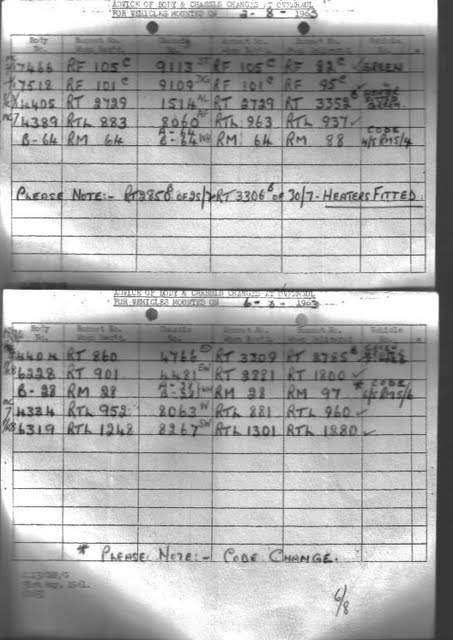 ADVICE OF BODY & CHASSIS CHANGES AT OVERHAUL
FOR VEHICLES MOUNTED ON 2-8-1963
Body No. Bonnet No. When Rec'd. Chassis No. Bonnet No. When Rec'd. Bonnet No. When Delivered Vehicle No.
7466 RF 105c 9113 ST RF 105c RF 82c GREEN
7518 RF 101c 9109 DG RF 101c RF 95c ✓
4405 RT 2729 1514 AL RT 2729 RT 3352 GREEN
4389 RTL 883 8060 RTL 963 RTL 937 ✓
B-64 RM 64 A-64 B-64 WH RM 64 RM 88 CODE 4/5 RM 5/4
PLEASE NOTE:- RT 2858 OF 25/7 RT 3306 OF 30/7 - HEATERS FITTED.
ADVICE OF BODY & CHASSIS CHANGES AT OVERHAUL
FOR VEHICLES MOUNTED ON 6-8-1963
Body No. Bonnet No. When Rec'd. Chassis No. Bonnet No. When Rec'd. Bonnet No. When Delivered Vehicle No.
4404 RT 860 4766 ED RT 3309 RT 2785
6228 RT 901 4481 EW RT 2881 RT 1800 ✓
B-28 RM 28 WH RM 28 RM 97 * CODE
4334 RTL 952 8063 N RTL 881 RTL 960 ✓
6319 RTL 1248 8267 SW RTL 1301 RTL 1280 ✓
* PLEASE NOTE:- CODE CHANGE.
31st May, 1961.
6/8